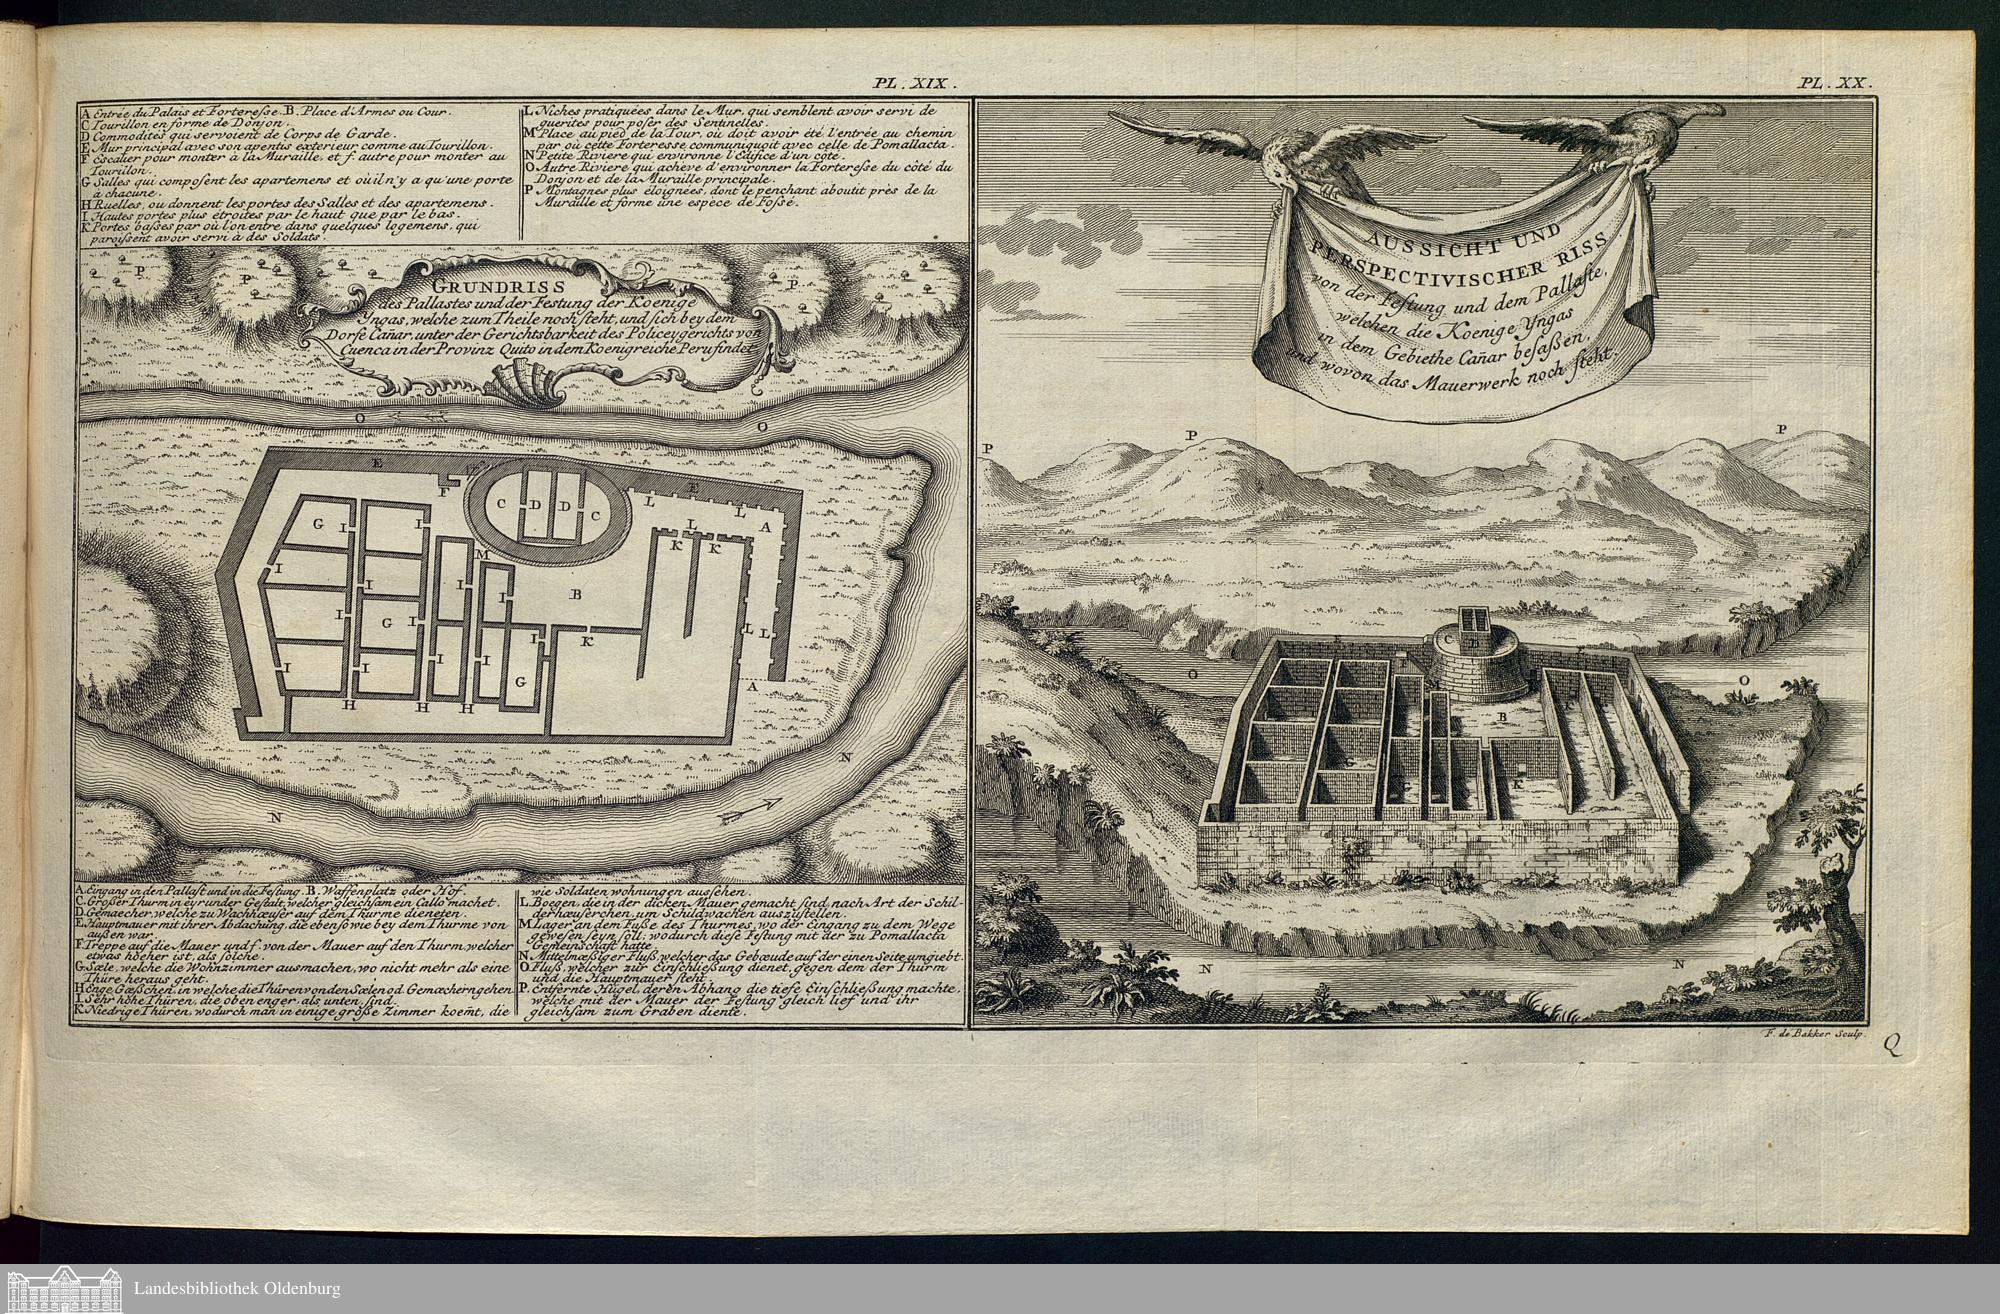 PL. XIX.
A Entrée du Palais et Forteresse. B. Place d'Armes ou Cour.
C Tourillon en forme de Donjon.
D Commodités qui servoient de Corps de Garde.
E Mur principal avec son apentis exterieur comme au Tourillon.
F Escalier pour monter à la Muraille, et f. autre pour monter au
Tourillon.
G Salles qui composent les apartemens et où il n'y a qu'une porte
à chacune.
H Ruelles, ou donnent les portes des Salles et des apartemens.
I Hautes portes plus étroites par le haut que par le bas.
K Portes basses par où l'on entre dans quelques logemens, qui
paroissent avoir servi à des Soldats.
L Niches pratiquées dans le Mur, qui semblent avoir servi de
guerites pour poser des Sentinelles.
M Place au pied de la Tour, où doit avoir été l'entrée au chemin
par où cette Forteresse communiquoit avec celle de Pomallacta.
N Petite Riviere qui environne l'Edifice d'un côté.
O Autre Riviere qui achève d'environner la Forteresse du côté du
Donjon et de la Muraille principale.
P Montagnes plus éloignées, dont le penchant aboutit près de la
Muraille et forme une espece de Fossé.
GRUNDRISS
des Pallastes und der Festung der Koenige
Yngas, welche zum Theile noch steht, und sich bey dem
Dorfe Cañar, unter der Gerichtsbarkeit des Policeygerichts von
Cuenca in der Provinz Quito in dem Koenigreiche Peru findet
P
P
P
P
O
O
E
F
E
C
D
D
C
L
L
L
A
G
I
I
K
K
M
I
I
I
I
B
I
G
I
I
K
L
L
I
I
I
I
G
A
H
H
H
N
N
A. Eingang in den Pallast und in die Festung. B. Waffenplatz oder Hof.
C. Großer Thurm in eyrunder Gestalt, welcher gleichsam ein Callo machet.
D. Gemaecher, welche zu Wachhæuser auf dem Thurme dieneten.
E Hauptmauer mit ihrer Abdachung, die eben so wie bey dem Thurme von
außen war.
F Treppe auf die Mauer und f. von der Mauer auf den Thurm, welcher
etwas hoeher ist, als solche.
G Sæle, welche die Wohnzimmer ausmachen, wo nicht mehr als eine
Thüre heraus geht.
H Enge Gæßchen, in welche die Thüren von den Sælen od. Gemæchern gehen
I Sehr hohe Thüren, die oben enger, als unten, sind.
K Niedrige Thüren, wodurch man in einige große Zimmer koemt, die
wie Soldaten wohnungen aussehen.
L. Boegen, die in der dicken Mauer gemacht sind, nach Art der Schil-
derhæuserchen, um Schildwachen auszustellen.
M Lager an dem Fuße des Thurmes, wo der Eingang zu dem Wege
gewesen seyn soll; wodurch diese Festung mit der zu Pomallacta
Gemeinschaft hatte.
N. Mittelmæßiger Fluß, welcher das Gebœude auf der einen Seite umgiebt.
O Fluß, welcher zur Einschließung dienet, gegen dem der Thurm
und die Hauptmauer steht.
P. Entfernte Hügel, deren Abhang die tiefe Einschließung machte,
welche mit der Mauer der Festung gleich lief und ihr
gleichsam zum Graben diente.
PL. XX.
AUSSICHT UND
PERSPECTIVISCHER RISS
von der Festung und dem Pallaste,
welchen die Koenige Yngas
in dem Gebiethe Cañar besaßen,
und wovon das Mauerwerk noch steht.
P
P
P
E
C
D
F
O
O
M
K
B
G
G
K
N
N
F. de Bakker Sculp.
Q
Landesbibliothek Oldenburg